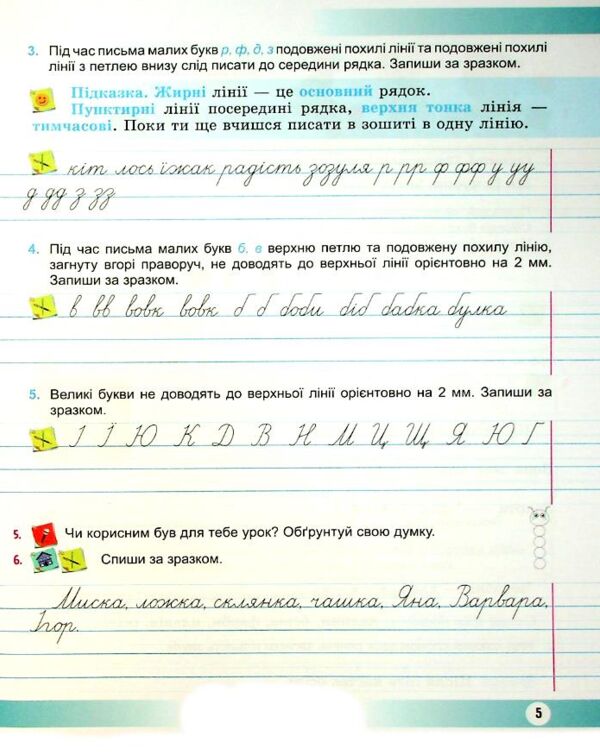 3. Під час письма малих букв р, ф, д, з подовжені похилі лінії та подовжені похилі
лінії з петлею внизу слід писати до середини рядка. Запиши за зразком.
Підказка. Жирні лінії — це основний рядок.
Пунктирні лінії посередині рядка, верхня тонка лінія —
тимчасові. Поки ти ще вчишся писати в зошиті в одну лінію.
кіт лось їжак радість зозуля р рр ф фф у уу
д дд з зз
4. Під час письма малих букв б, в верхню петлю та подовжену похилу лінію,
загнуту вгорі праворуч, не доводять до верхньої лінії орієнтовно на 2 мм.
Запиши за зразком.
в вв вовк вовк б б боби біб бабка булка
5. Великі букви не доводять до верхньої лінії орієнтовно на 2 мм. Запиши за
зразком.
І Ї Ю К Д В Н М Ц Щ Я Ю Г
5. Чи корисним був для тебе урок? Обґрунтуй свою думку.
6. Спиши за зразком.
Миска, ложка, склянка, чашка, Яна, Варвара,
Ігор.
5